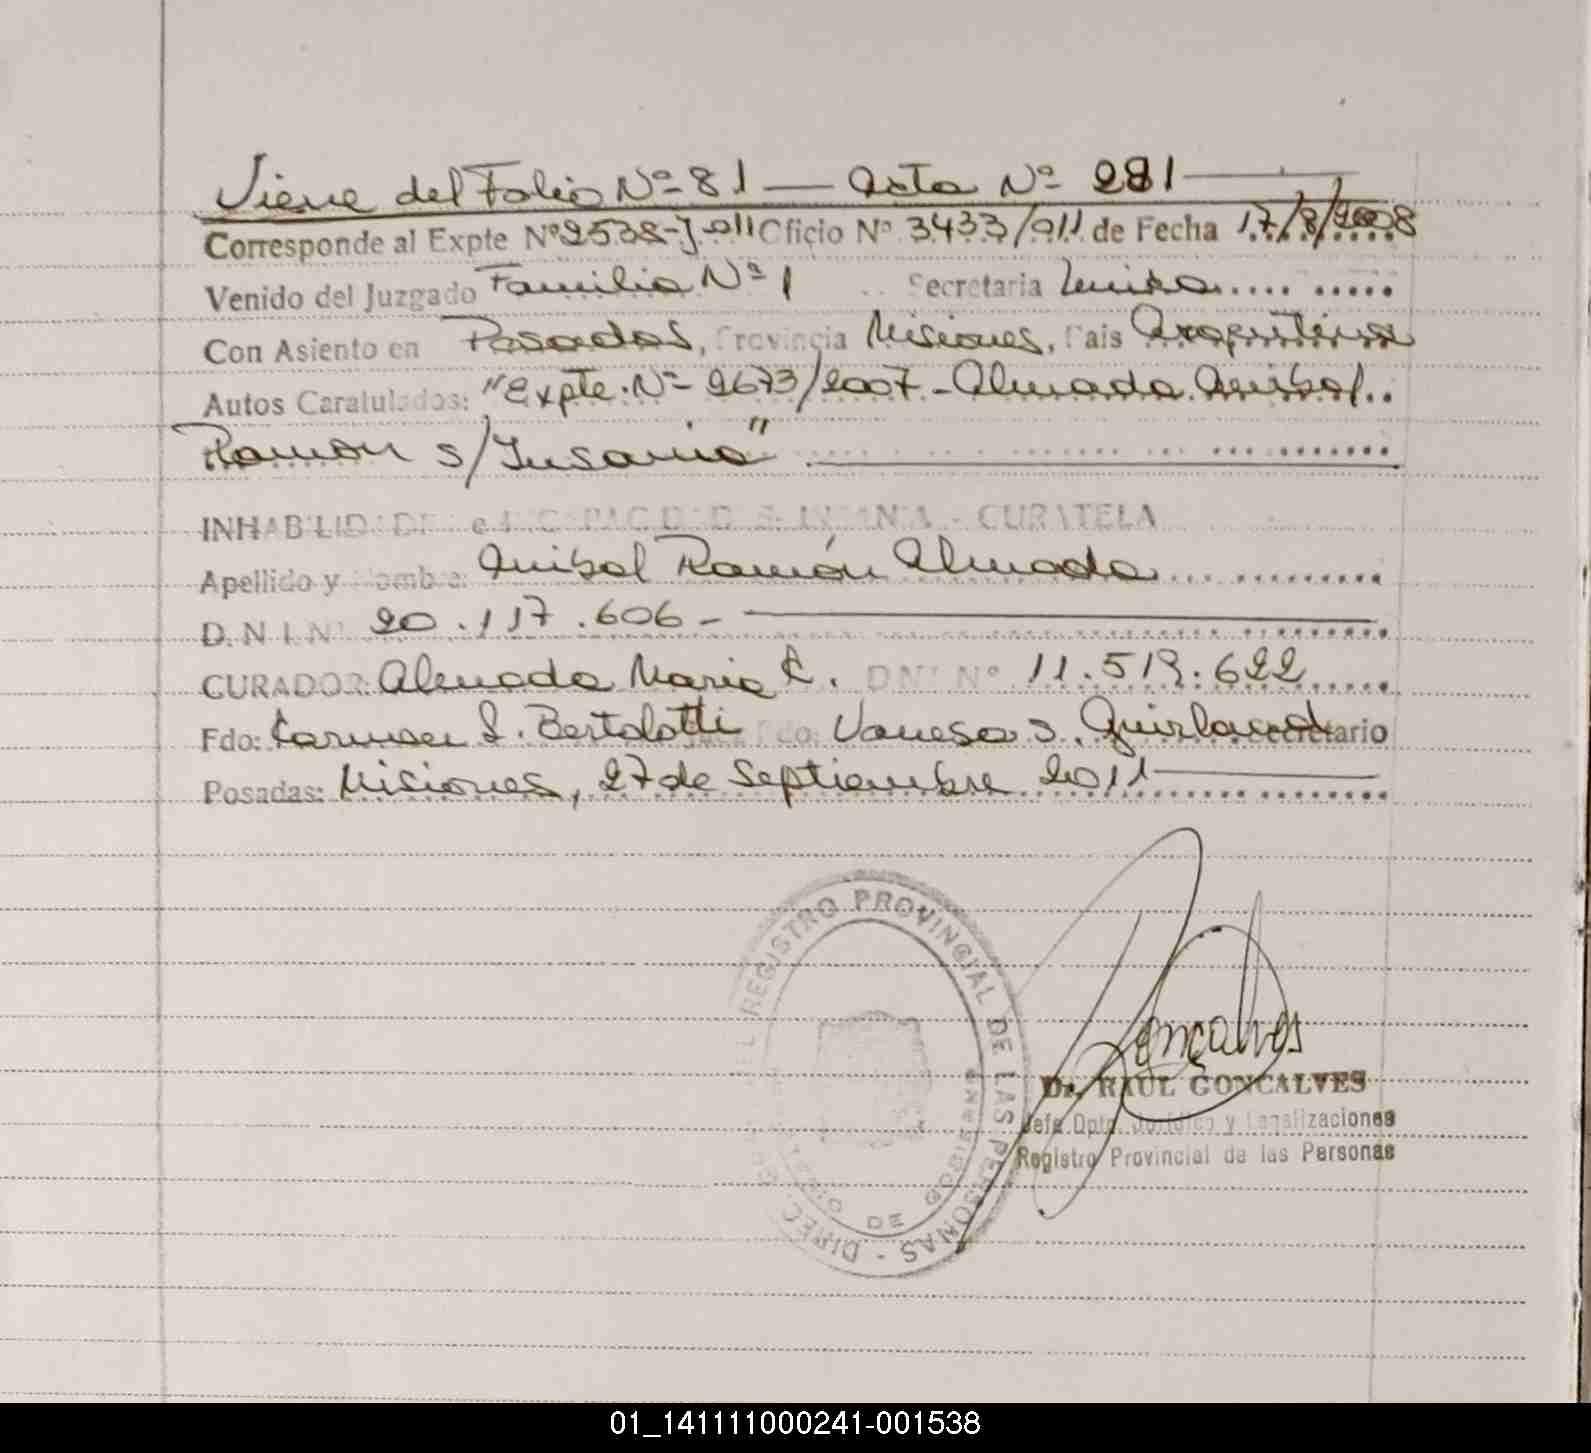 Viene del Folio Nº 81 — Acta Nº 281
Corresponde al Expte Nº 2538-J-011 Oficio Nº 3433/011 de Fecha 17/8/2008
Venido del Juzgado Familia Nº 1 Secretaria Unica
Con Asiento en Posadas, Provincia Misiones, Pais Argentina
Autos Caratulados: "Expte. Nº 2673/2007 - Almada Anibal
Ramon s/Insania"
INHABILIDAD e INCAPACIDAD - INSANIA - CURATELA
Apellido y Nombre: Anibal Ramón Almada
D.N.I. Nº 20.117.606 -
CURADOR: Almada Maria C. DNI Nº 11.519.622
Fdo: Carmen Bertolotti Fdo: Vanesa S. Secretario
Posadas: Misiones, 27 de Septiembre 2011
REGISTRO PROVINCIAL DE LAS PERSONAS - DIREC
DE GOBIERNO
Goncalves
Dr. RAUL GONCALVES
Jefe Dpto. Jurídico y Legalizaciones
Registro Provincial de las Personas
01_141111000241-001538